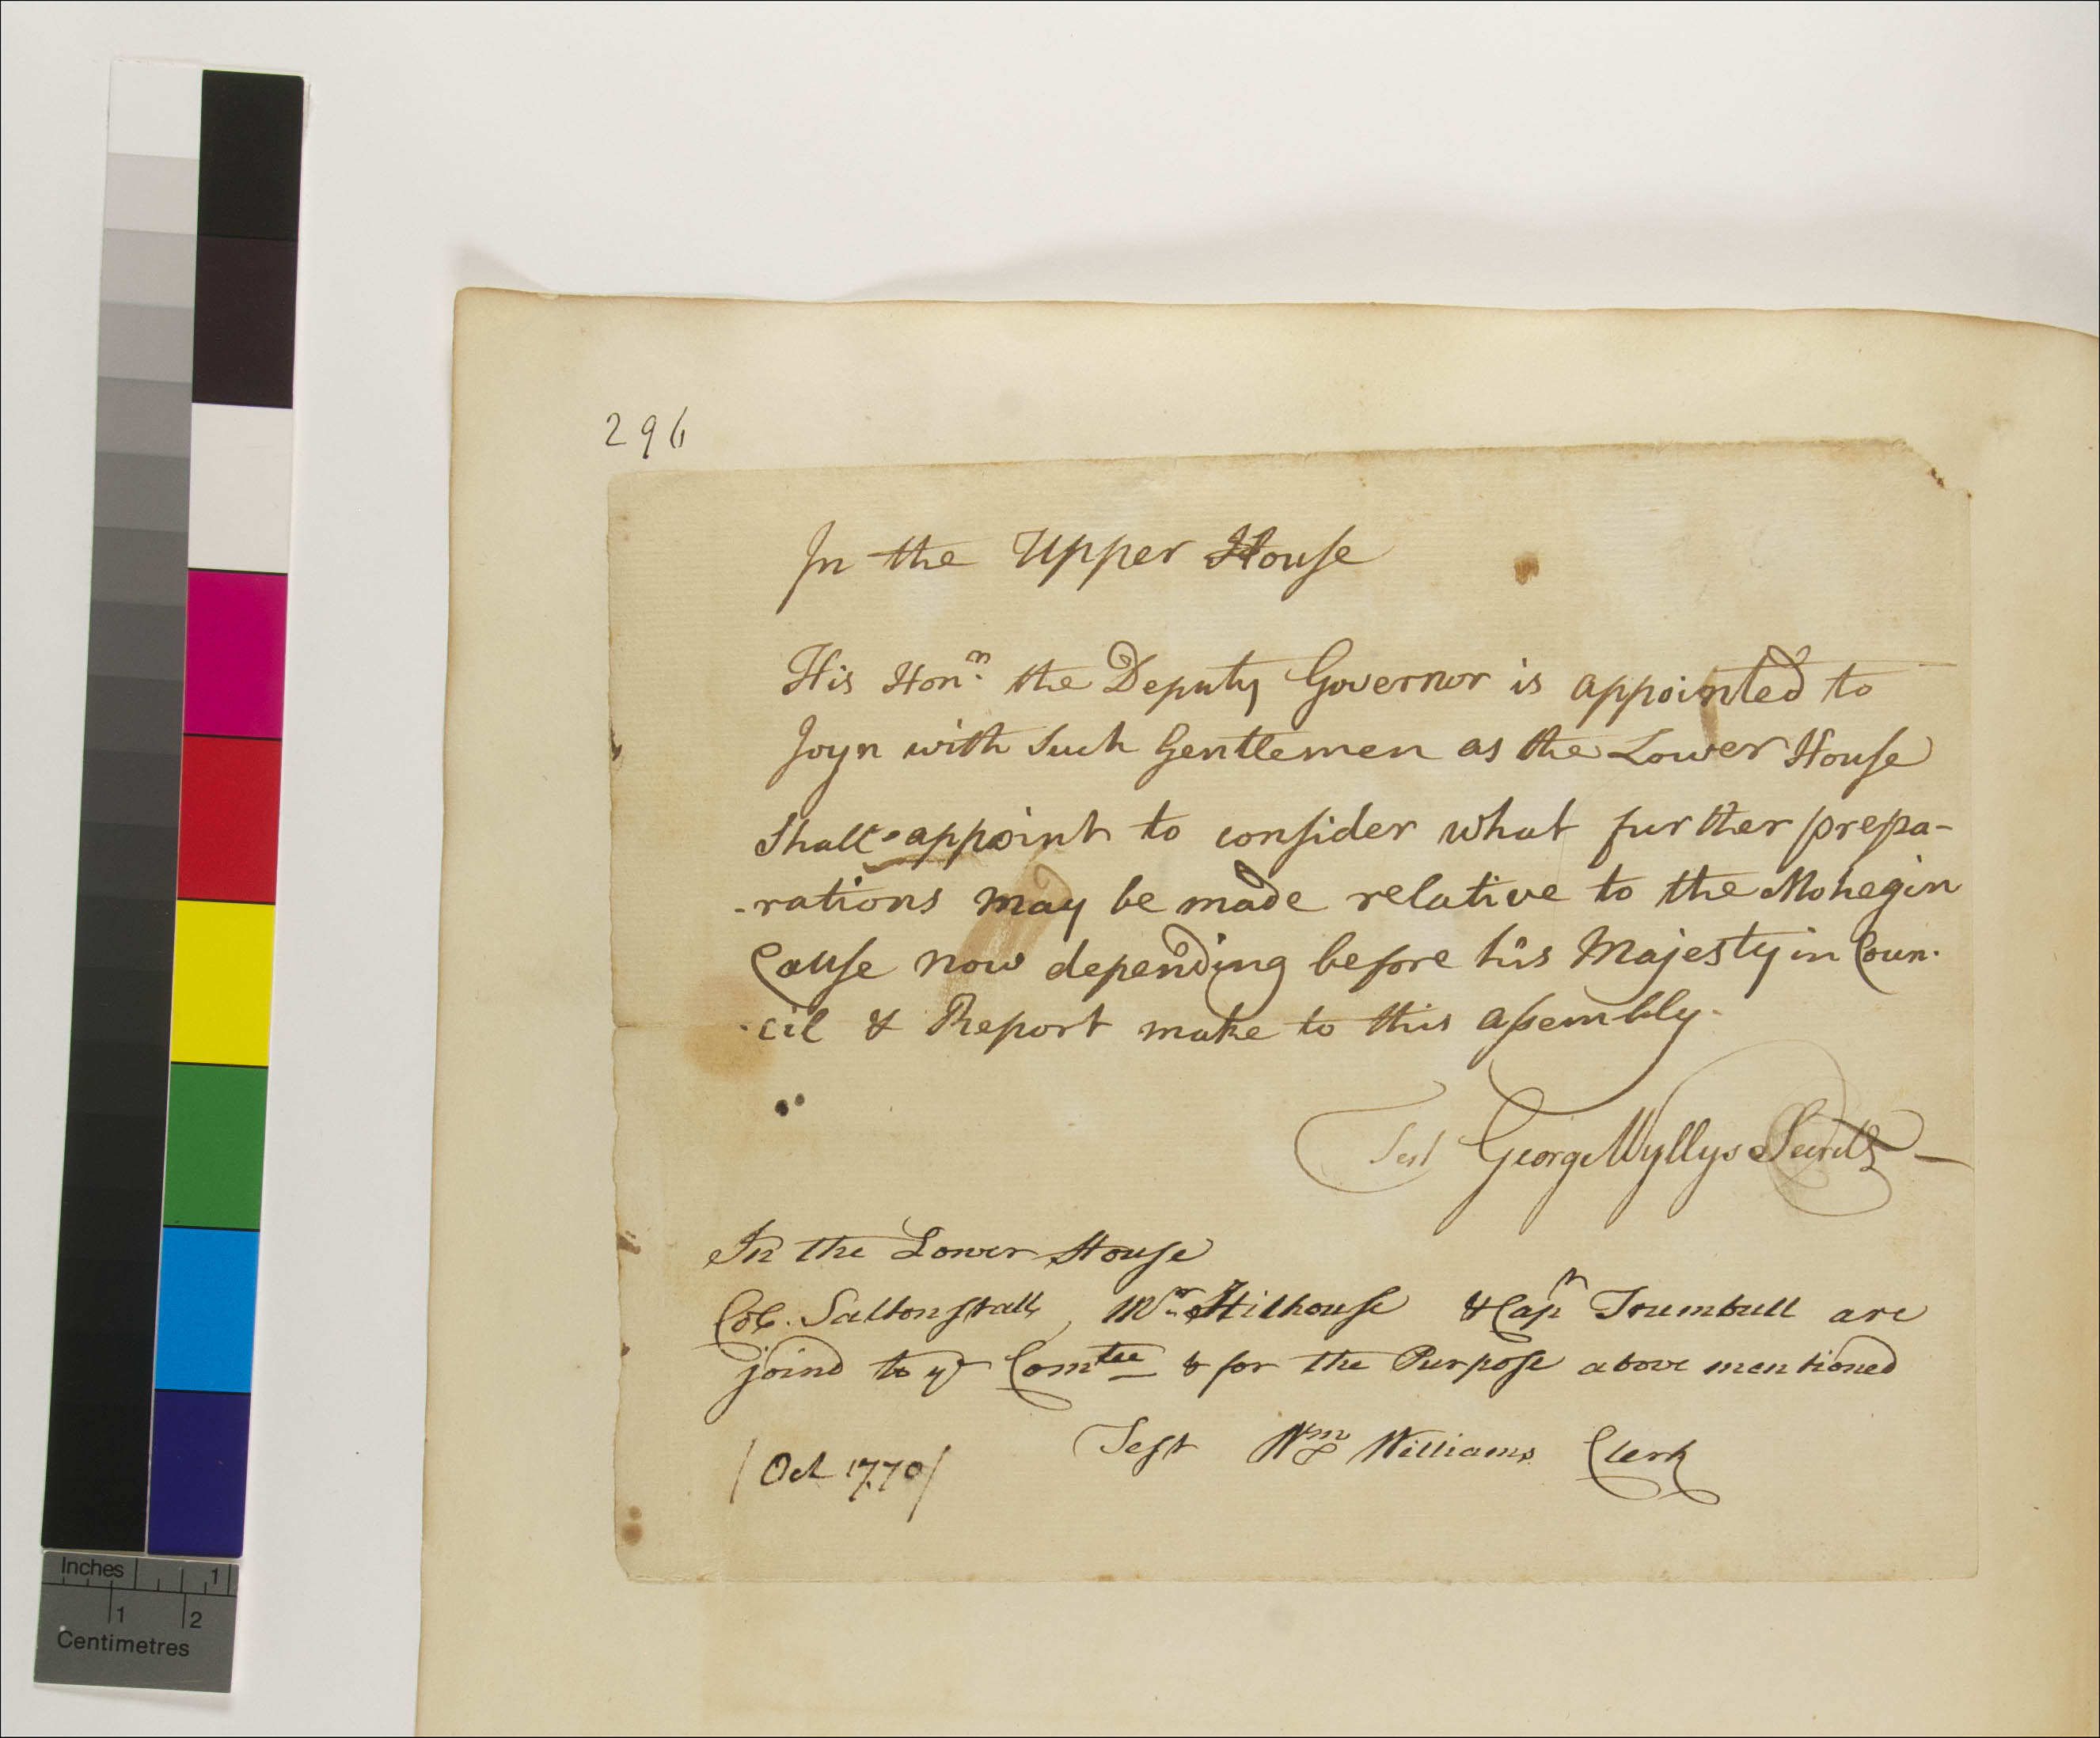 296
In the Upper House
His Honr. the Deputy Governor is appointed to
Joyn with Such Gentlemen as the Lower House
Shall appoint to consider what further prepa-
-rations may be made relative to the Mohegin
Cause now depending before his Majesty in Coun-
-cil & Report make to this assembly.
Test George Wyllys Secrety
In the Lower House
Col. Saltonstall, Mr. Hilhouse & Capn Trumbull are
joind to ye Comtee & for the Purpose above mentioned
Test Wm Williams Clerk
/Oct 1770/
Inches 1
1 2
Centimetres